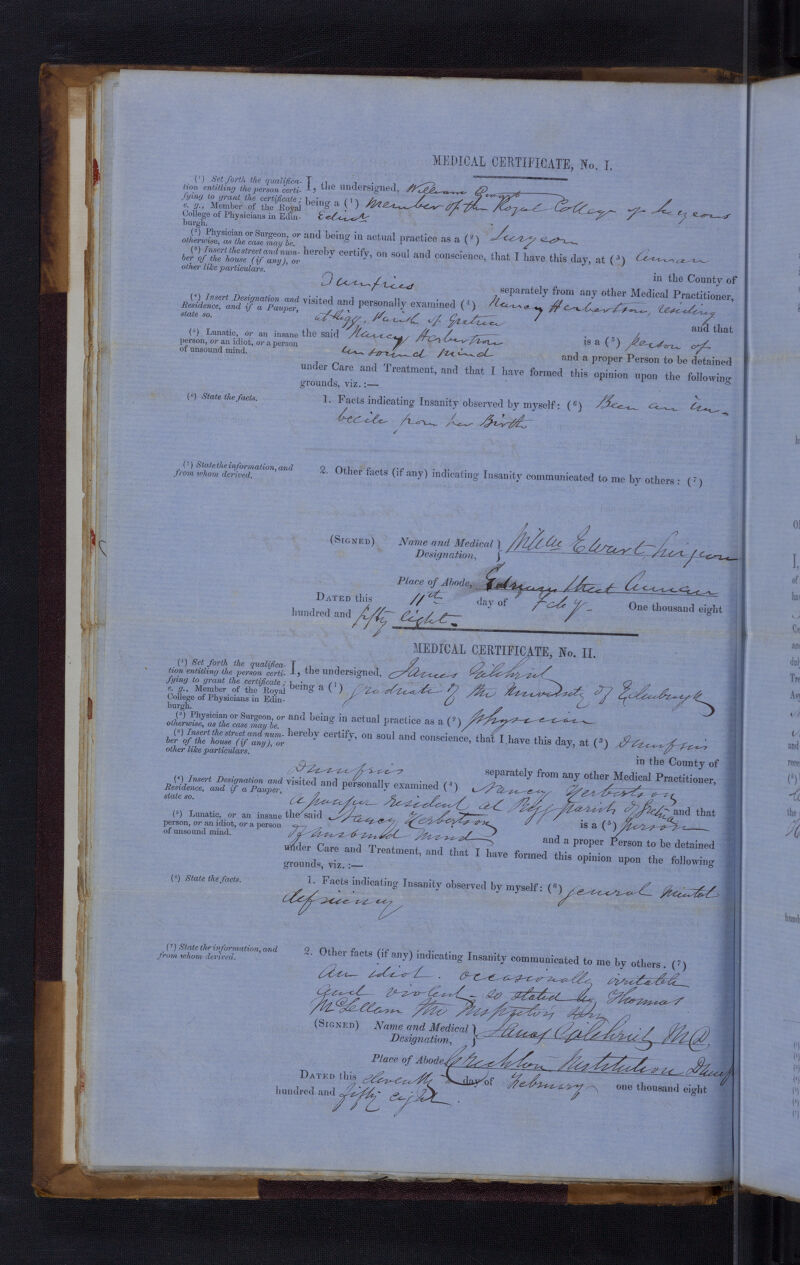 MEDICAL CERTIFICATE, No. I.
(¹) Set forth the qualifica-
tion entitling the person certi-
fying to grant the certificate;
e. g., Member of the Royal
College of Physicians in Edin-
burgh.
I, the undersigned, William Ewart
being a (¹) Member of the Royal College of Surgeons
Edinr.
(²) Physician or Surgeon, or
otherwise, as the case may be.
and being in actual practice as a (²) Surgeon
(³) Insert the street and num-
ber of the house (if any), or
other like particulars.
hereby certify, on soul and conscience, that I have this day, at (³) Annan
in the County of
Dumfries separately from any other Medical Practitioner,
(⁴) Insert Designation and
Residence, and if a Pauper,
state so.
visited and personally examined (⁴) Nancy Herbertson, residing
at Rigg, Parish of Gretna and that
(⁵) Lunatic, or an insane
person, or an idiot, or a person
of unsound mind.
the said Nancy Herbertson is a (⁵) person of
unsound mind and a proper Person to be detained
under Care and Treatment, and that I have formed this opinion upon the following
grounds, viz. :—
(⁶) State the facts.
1. Facts indicating Insanity observed by myself: (⁶) Been an im-
becile from her Birth
(⁷) State the information, and
from whom derived.
2. Other facts (if any) indicating Insanity communicated to me by others : (⁷)
(SIGNED) Name and Medical Designation, } Willm Ewart, Surgeon
Place of Abode, Street Annan
DATED this 11th day of Feby. One thousand eight
hundred and fifty eight.
MEDICAL CERTIFICATE, No. II.
(¹) Set forth the qualifica-
tion entitling the person certi-
fying to grant the certificate;
e. g., Member of the Royal
College of Physicians in Edin-
burgh.
I, the undersigned, James Gilchrist
being a (¹) graduate of the University of Edinburgh
(²) Physician or Surgeon, or
otherwise, as the case may be.
and being in actual practice as a (²) Physician
(³) Insert the street and num-
ber of the house (if any), or
other like particulars.
hereby certify, on soul and conscience, that I have this day, at (³) Dumfries
in the County of
Dumfries separately from any other Medical Practitioner,
(⁴) Insert Designation and
Residence, and if a Pauper,
state so.
visited and personally examined (⁴) Nancy Herbertson
a pauper resident at Rigg parish of Gretna and that
(⁵) Lunatic, or an insane
person, or an idiot, or a person
of unsound mind.
the said Nancy Herbertson is a (⁵) person
of unsound mind and a proper Person to be detained
under Care and Treatment, and that I have formed this opinion upon the following
grounds, viz. :—
(⁶) State the facts.
1. Facts indicating Insanity observed by myself: (⁶) general mental
deficiency
(⁷) State the information, and
from whom derived.
2. Other facts (if any) indicating Insanity communicated to me by others. (⁷)
An idiot. occasionally irritable
and violent – so stated by Thomas
McLellan the Inspector's son
(SIGNED) Name and Medical Designation, } James Gilchrist M.D.
Place of Abode, Crichton Institution
DATED this eleventh day of February one thousand eight
hundred and fifty eight.